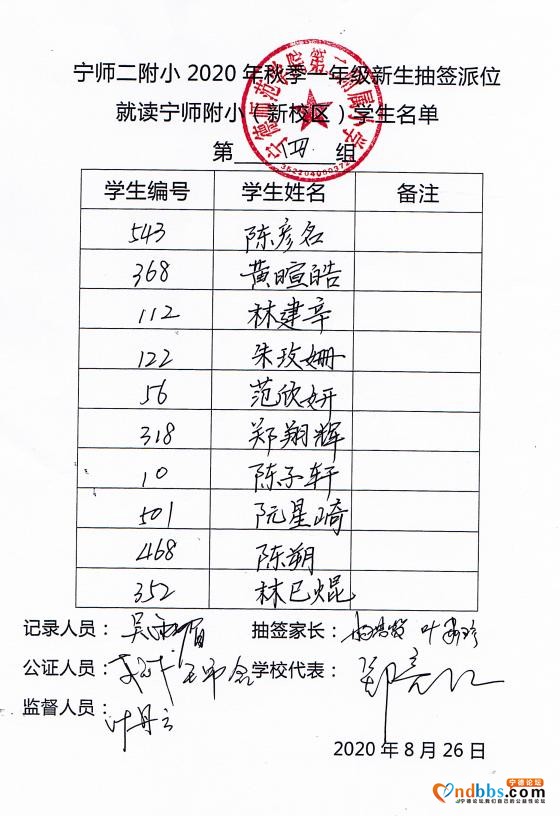 宁师二附小 2020 年秋季一年级新生抽签派位
就读宁师附小（新校区）学生名单
第 四 组
学生编号 学生姓名 备注
543 陈彦名
368 黄暄皓
112 林建辛
122 朱玫姗
56 范欣妍
318 郑翔辉
10 陈子轩
501 阮星崎
468 陈朔
352 林已焜
记录人员：
抽签家长：
公证人员：
学校代表：
监督人员：叶丹云
2020 年 8 月 26 日
宁德论坛
ndbbs.com